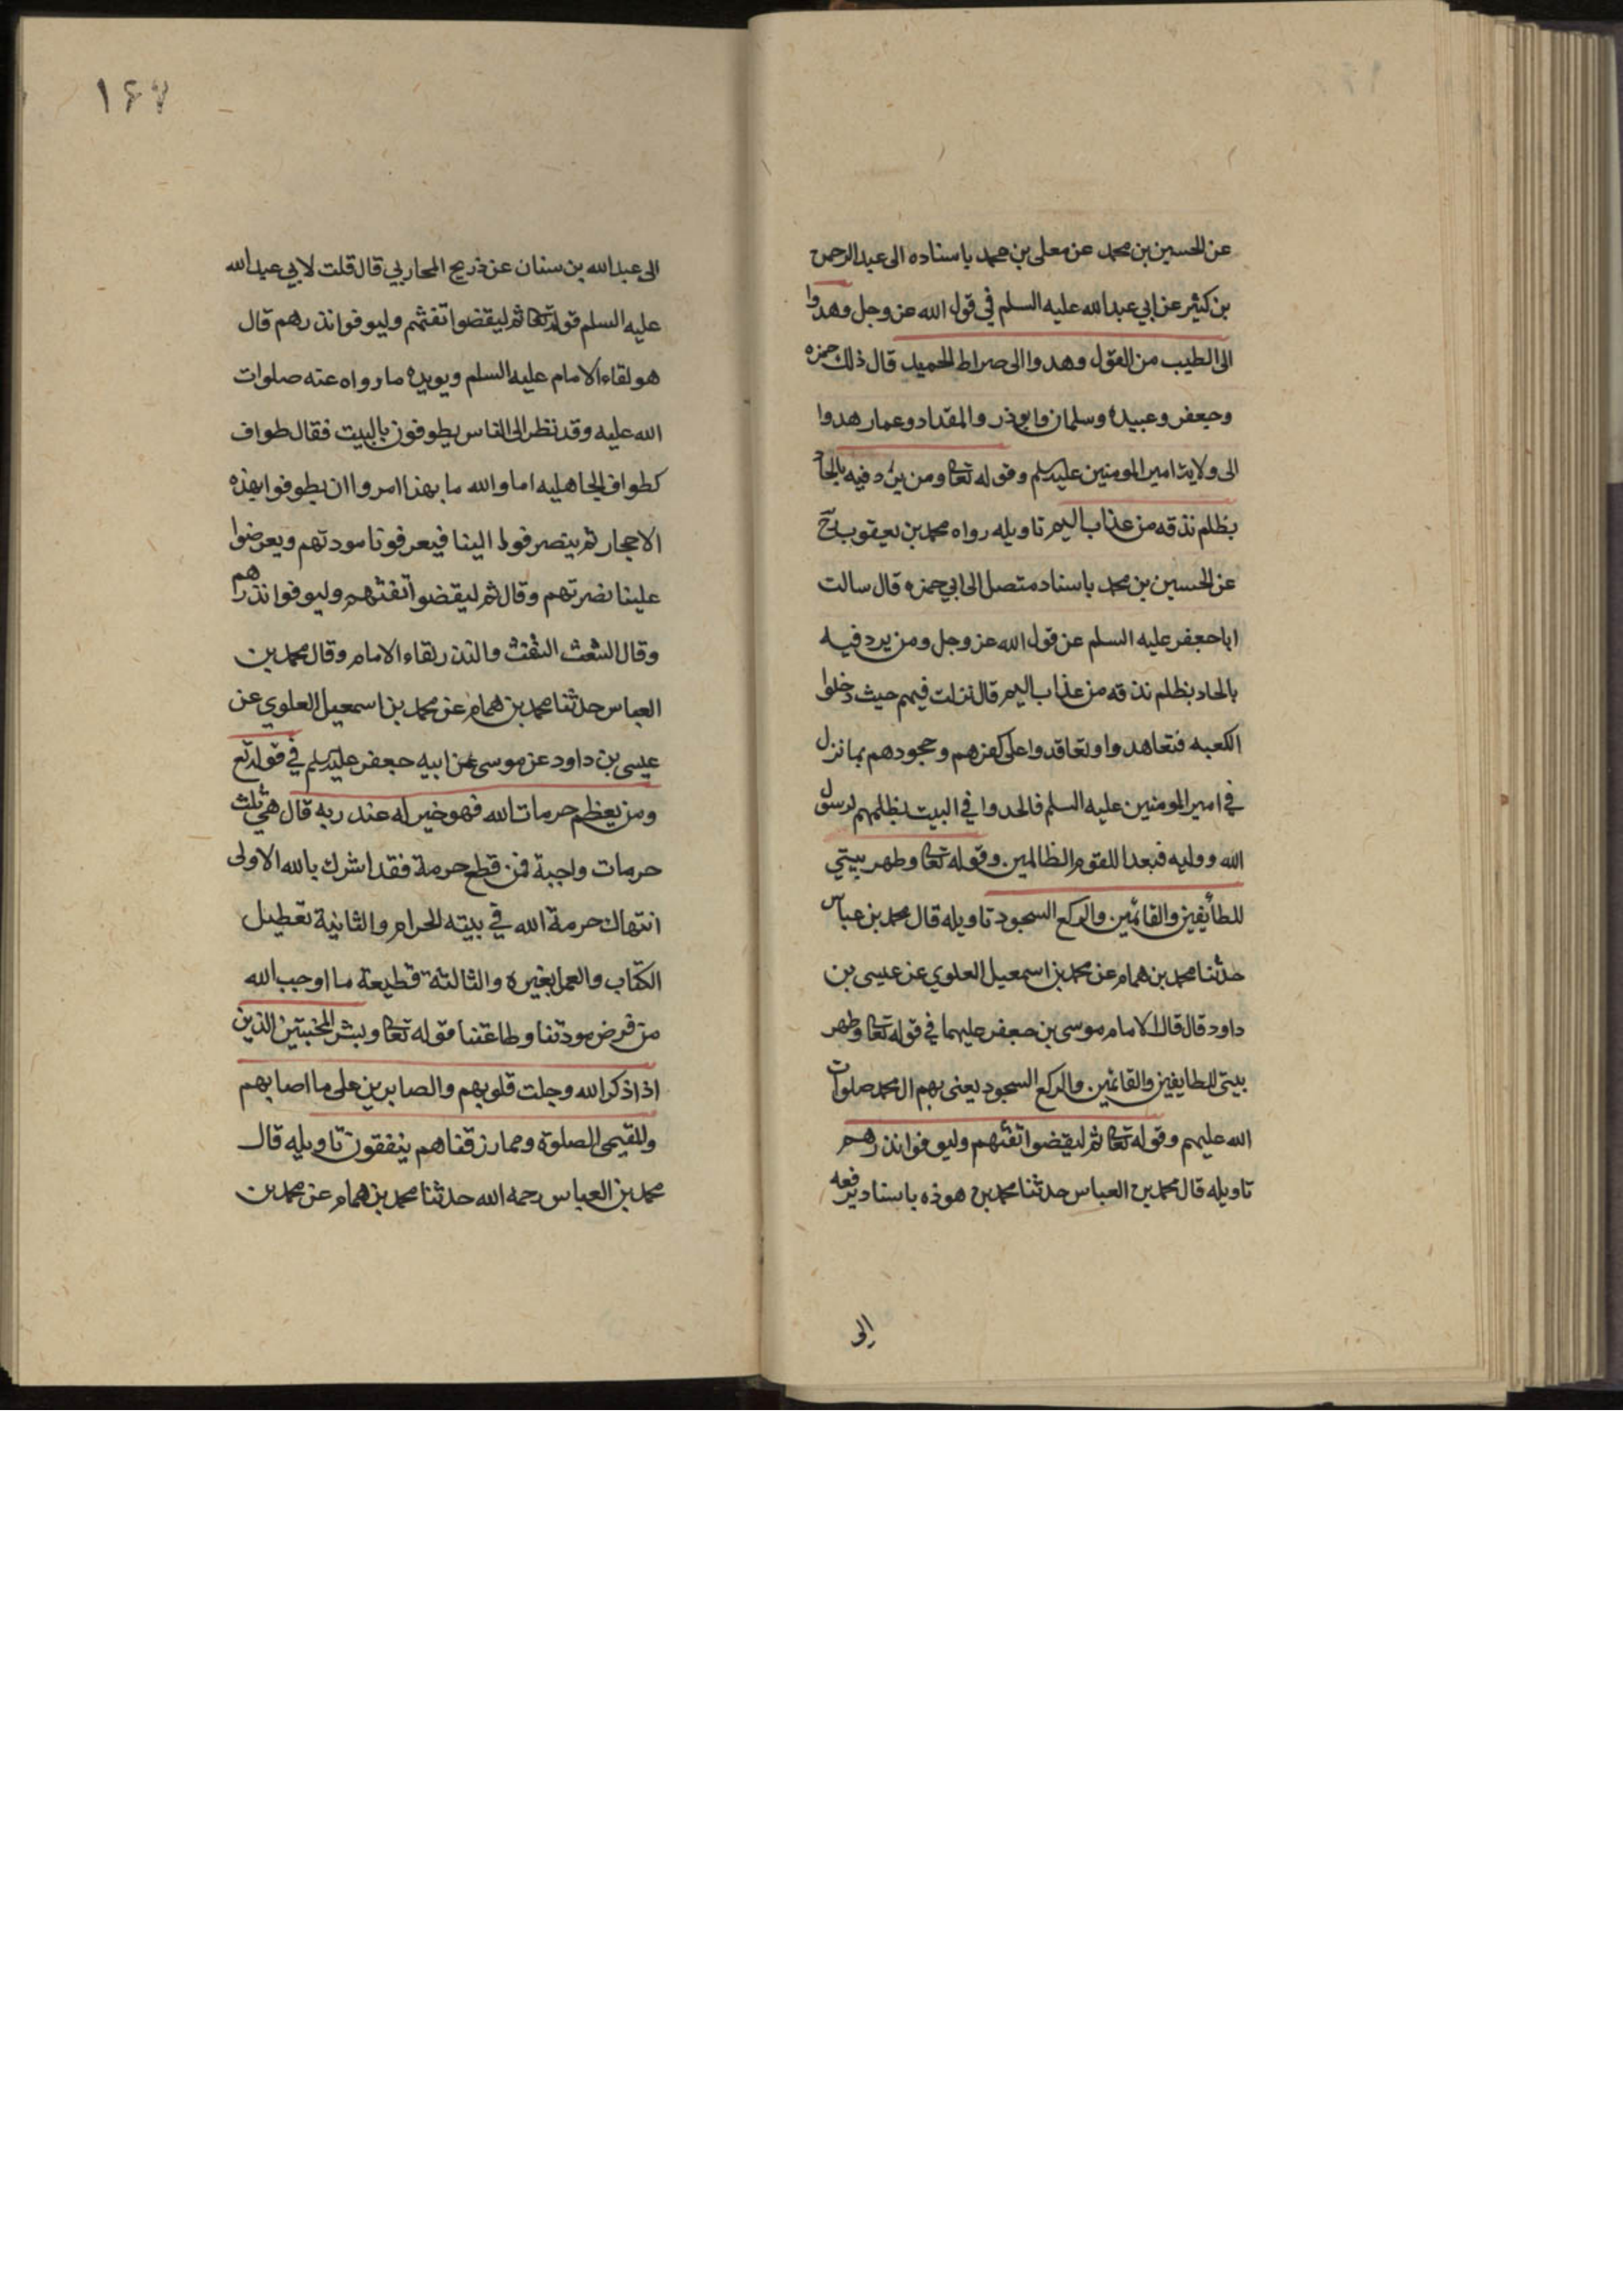 عن الحسين بن محمد عن معلى بن محمد باسناده الى عبد الرحمن
بن كثير عن ابي عبد الله عليه السلم في قول الله عز وجل وهدوا
الى الطيب من القول وهدوا الى صراط الحميد قال ذلك حمزه
وجعفر وعبيده وسلمان وابوذر والمقداد وعمار هدوا
الى ولاية امير المومنين عليه السلم وقوله تعا ومن يرد فيه بالحاد
بظلم نذقه من عذاب اليم تاويله رواه محمد بن يعقوب رح
عن الحسين بن محمد باسناد متصل الى ابي حمزه قال سالت
ابا جعفر عليه السلم عن قول الله عز وجل ومن يرد فيه
بالحاد بظلم نذقه من عذاب اليم قال نزلت فيهم حيث دخلوا
الكعبه فتعاهدوا وتعاقدوا على كفرهم وجحودهم بما نزل
في امير المومنين عليه السلم فالحدوا في البيت بظلمهم لرسول
الله ووليه فبعدا للقوم الظالمين وقوله تعا وطهر بيتي
للطائفين والقائمين والركع السجود تاويله قال محمد بن عباس
حدثنا محمد بن همام عن محمد بن اسمعيل العلوي عن عيسى بن
داود قال قال الامام موسى بن جعفر عليهما في قوله تعا وطهر
بيتى للطايفين والقائمين والركع السجود يعنى بهم ال محمد صلوات
الله عليهم وقوله تعا ثم ليقضوا تفثهم وليوفوا نذرهم
تاويله قال محمد بن العباس حدثنا محمد بن هوذه باسناد يرفعه
الى
١٦٧
الى عبد الله بن سنان عن ذريح المحاربي قال قلت لابي عبد الله
عليه السلم قوله تعا ثم ليقضوا تفثهم وليوفوا نذرهم قال
هو لقاء الامام عليه السلم ويويده ما رواه عنه صلوات
الله عليه وقد نظر الى الناس يطوفون بالبيت فقال طواف
كطواف الجاهليه اما والله ما بهذا امروا ان يطوفوا بهذه
الاحجار ثم ينصرفوا الينا فيعرفونا مودتهم ويعرضوا
علينا نصرتهم وقال ثم ليقضوا تفثهم وليوفوا نذرهم
وقال الشعث التفث والنذر لقاء الامام وقال محمد بن
العباس حدثنا محمد بن همام عن محمد بن اسمعيل العلوي عن
عيسى بن داود عن موسى عن ابيه جعفر عليه السلم في قوله تع
ومن يعظم حرمات الله فهو خير له عند ربه قال هي ثلث
حرمات واجبة فمن قطع حرمة فقد اشرك بالله الاولى
انتهاك حرمة الله في بيته الحرام والثانية تعطيل
الكتاب والعمل بغيره والثالثة قطيعة ما اوجب الله
من فرض مودتنا وطاعتنا وقوله تعا وبشر المخبتين الذين
اذا ذكر الله وجلت قلوبهم والصابرين على ما اصابهم
والمقيمى الصلوة ومما رزقناهم ينفقون تاويله قال
محمد بن العباس رحمه الله حدثنا محمد بن همام عن محمد بن